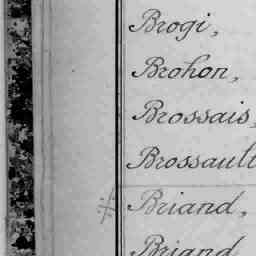 Brogi,
Brohon,
Brossais,
Brossault
Briand,
Briand